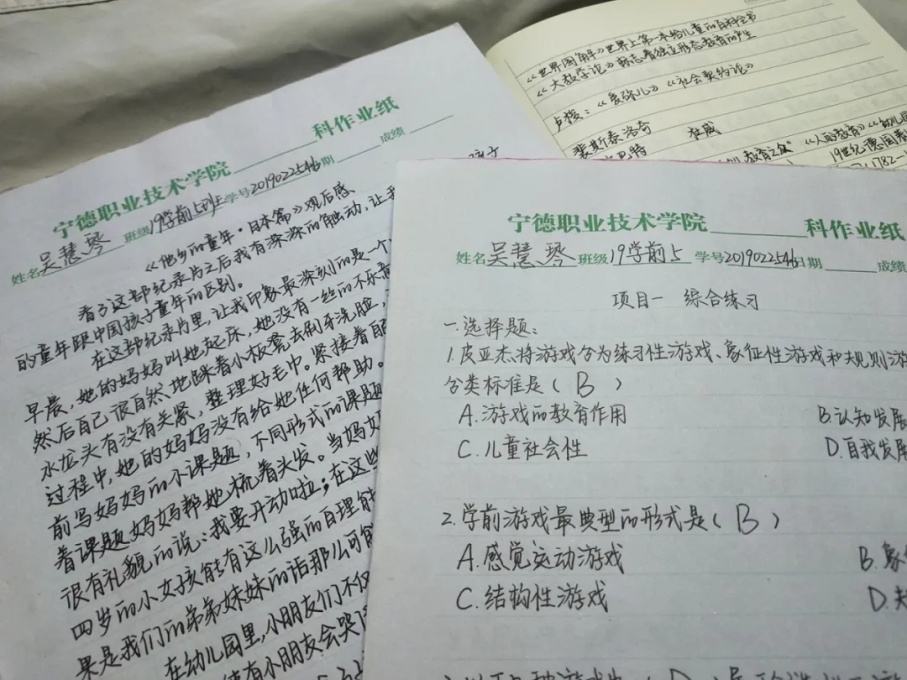 宁德职业技术学院 科作业纸
姓名 吴慧琴 班级 19学前5班 学号 2019022546 日期 成绩
《他乡的童年·日本篇》观后感
看了这部纪录片之后我有深深的触动,让
的童年跟中国孩子童年的区别。
在这部纪录片里,让我印象最深刻的是一个
早晨,她的妈妈叫她起床,她没有一丝的不乐意
然后自己很自然地踩着小板凳去刷牙洗脸,
水龙头有没有关紧,整理好毛巾。紧接着
过程中,她的妈妈没有给她任何帮助。
前写妈妈的小课题,不同形式的课题
着课题妈妈帮她梳着头发。当妈妈
很有礼貌的说:我要开动啦;在这些
四岁的小女孩能有这么强的自理能
果是我们的弟弟妹妹的话那么可能
在幼儿园里,小朋友们不仅
有小朋友会哭
《世界图解》世界上第一本给儿童的百科全书
《大教学论》标志着独立形态教育的产生
卢梭:《爱弥儿》《社会契约论》
裴斯泰洛奇 杜威
《人的教育》
19世纪德国
宁德职业技术学院 科作业纸
姓名 吴慧琴 班级 19学前5 学号 2019022546 日期 成绩
项目一 综合练习
一.选择题:
1.皮亚杰将游戏分为练习性游戏、象征性游戏和规则游
分类标准是( B )
A.游戏的教育作用 B.认知发展
C.儿童社会性 D.自我发展
2.学前游戏最典型的形式是( B )
A.感觉运动游戏 B.象
C.结构性游戏 D.